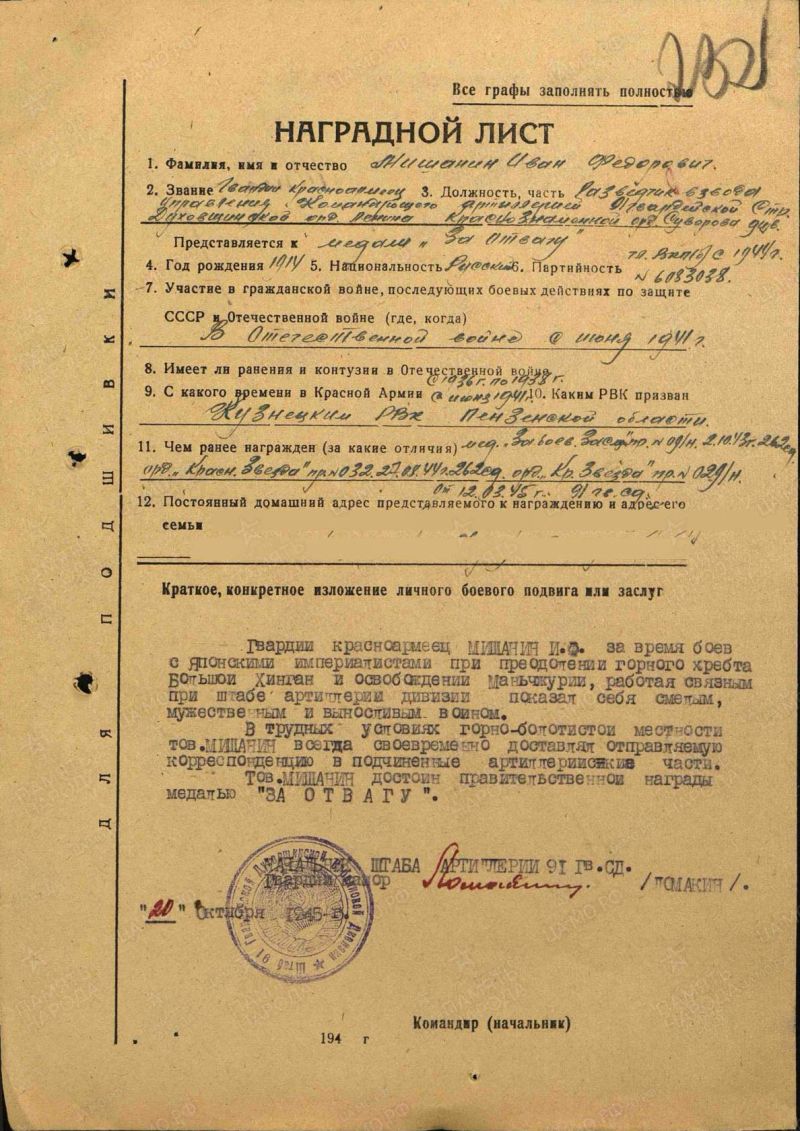 Все графы заполнять полностью
НАГРАДНОЙ ЛИСТ
1. Фамилия, имя и отчество Мишанин Иван Федорович.
2. Звание Гвардии Красноармеец 3. Должность, часть Разведчик взвода
управления Командующего Артиллерией 91 Гвардейской Стр.
Духовщинской орд. Ленина Краснознаменной орд. Суворова див.
Представляется к медали „За Отвагу"
4. Год рождения 1914 5. Национальность Русский 6. Партийность чл. ВКП(б) с 1944 г.
N 6083038.
7. Участие в гражданской войне, последующих боевых действиях по защите
СССР и Отечественной войне (где, когда)
В Отечественной войне с июня 1941 г.
8. Имеет ли ранения и контузии в Отечественной войне
с 1936 г. по 1938 г.
9. С какого времени в Красной Армии с июня 1941 10. Каким РВК призван
Кузнецким РВК Пензенской области.
11. Чем ранее награжден (за какие отличия) мед. „За боев. Заслуги" пр. N 09/н. 2.10.43г. 262 сд
орд. „Красн. Звезда" пр. N 032. 27.08.44 г. 262 сд. орд. „Кр. Звезда" пр. N 029/н.
от 12.03.45 г. 91 гв. сд.
12. Постоянный домашний адрес представляемого к награждению и адрес его
семьи
Краткое, конкретное изложение личного боевого подвига или заслуг
Гвардии красноармеец МИШАНИН И.Ф. за время боев
с японскими империалистами при преодолении горного хребта
Большой Хинган и освобождении Маньчжурии, работая связным
при штабе артиллерии дивизии показал себя смелым,
мужественным и выносливым воином.
В трудных условиях горно-болотистой местности
тов.МИШАНИН всегда своевременно доставлял отправляемую
корреспонденцию в подчиненные артиллерийские части.
Тов.МИШАНИН достоин правительственной награды
медалью "ЗА ОТВАГУ".
НАЧАЛЬНИК ШТАБА АРТИЛЛЕРИИ 91 ГВ.СД.
Гвардии майор /ПОМАКИН/.
"20" Октября 1945 г.
Штаб 91 Гвардейской Духовщинской Стрелковой Дивизии
Командир (начальник)
194 г
ДЛЯ ПОДШИВКИ